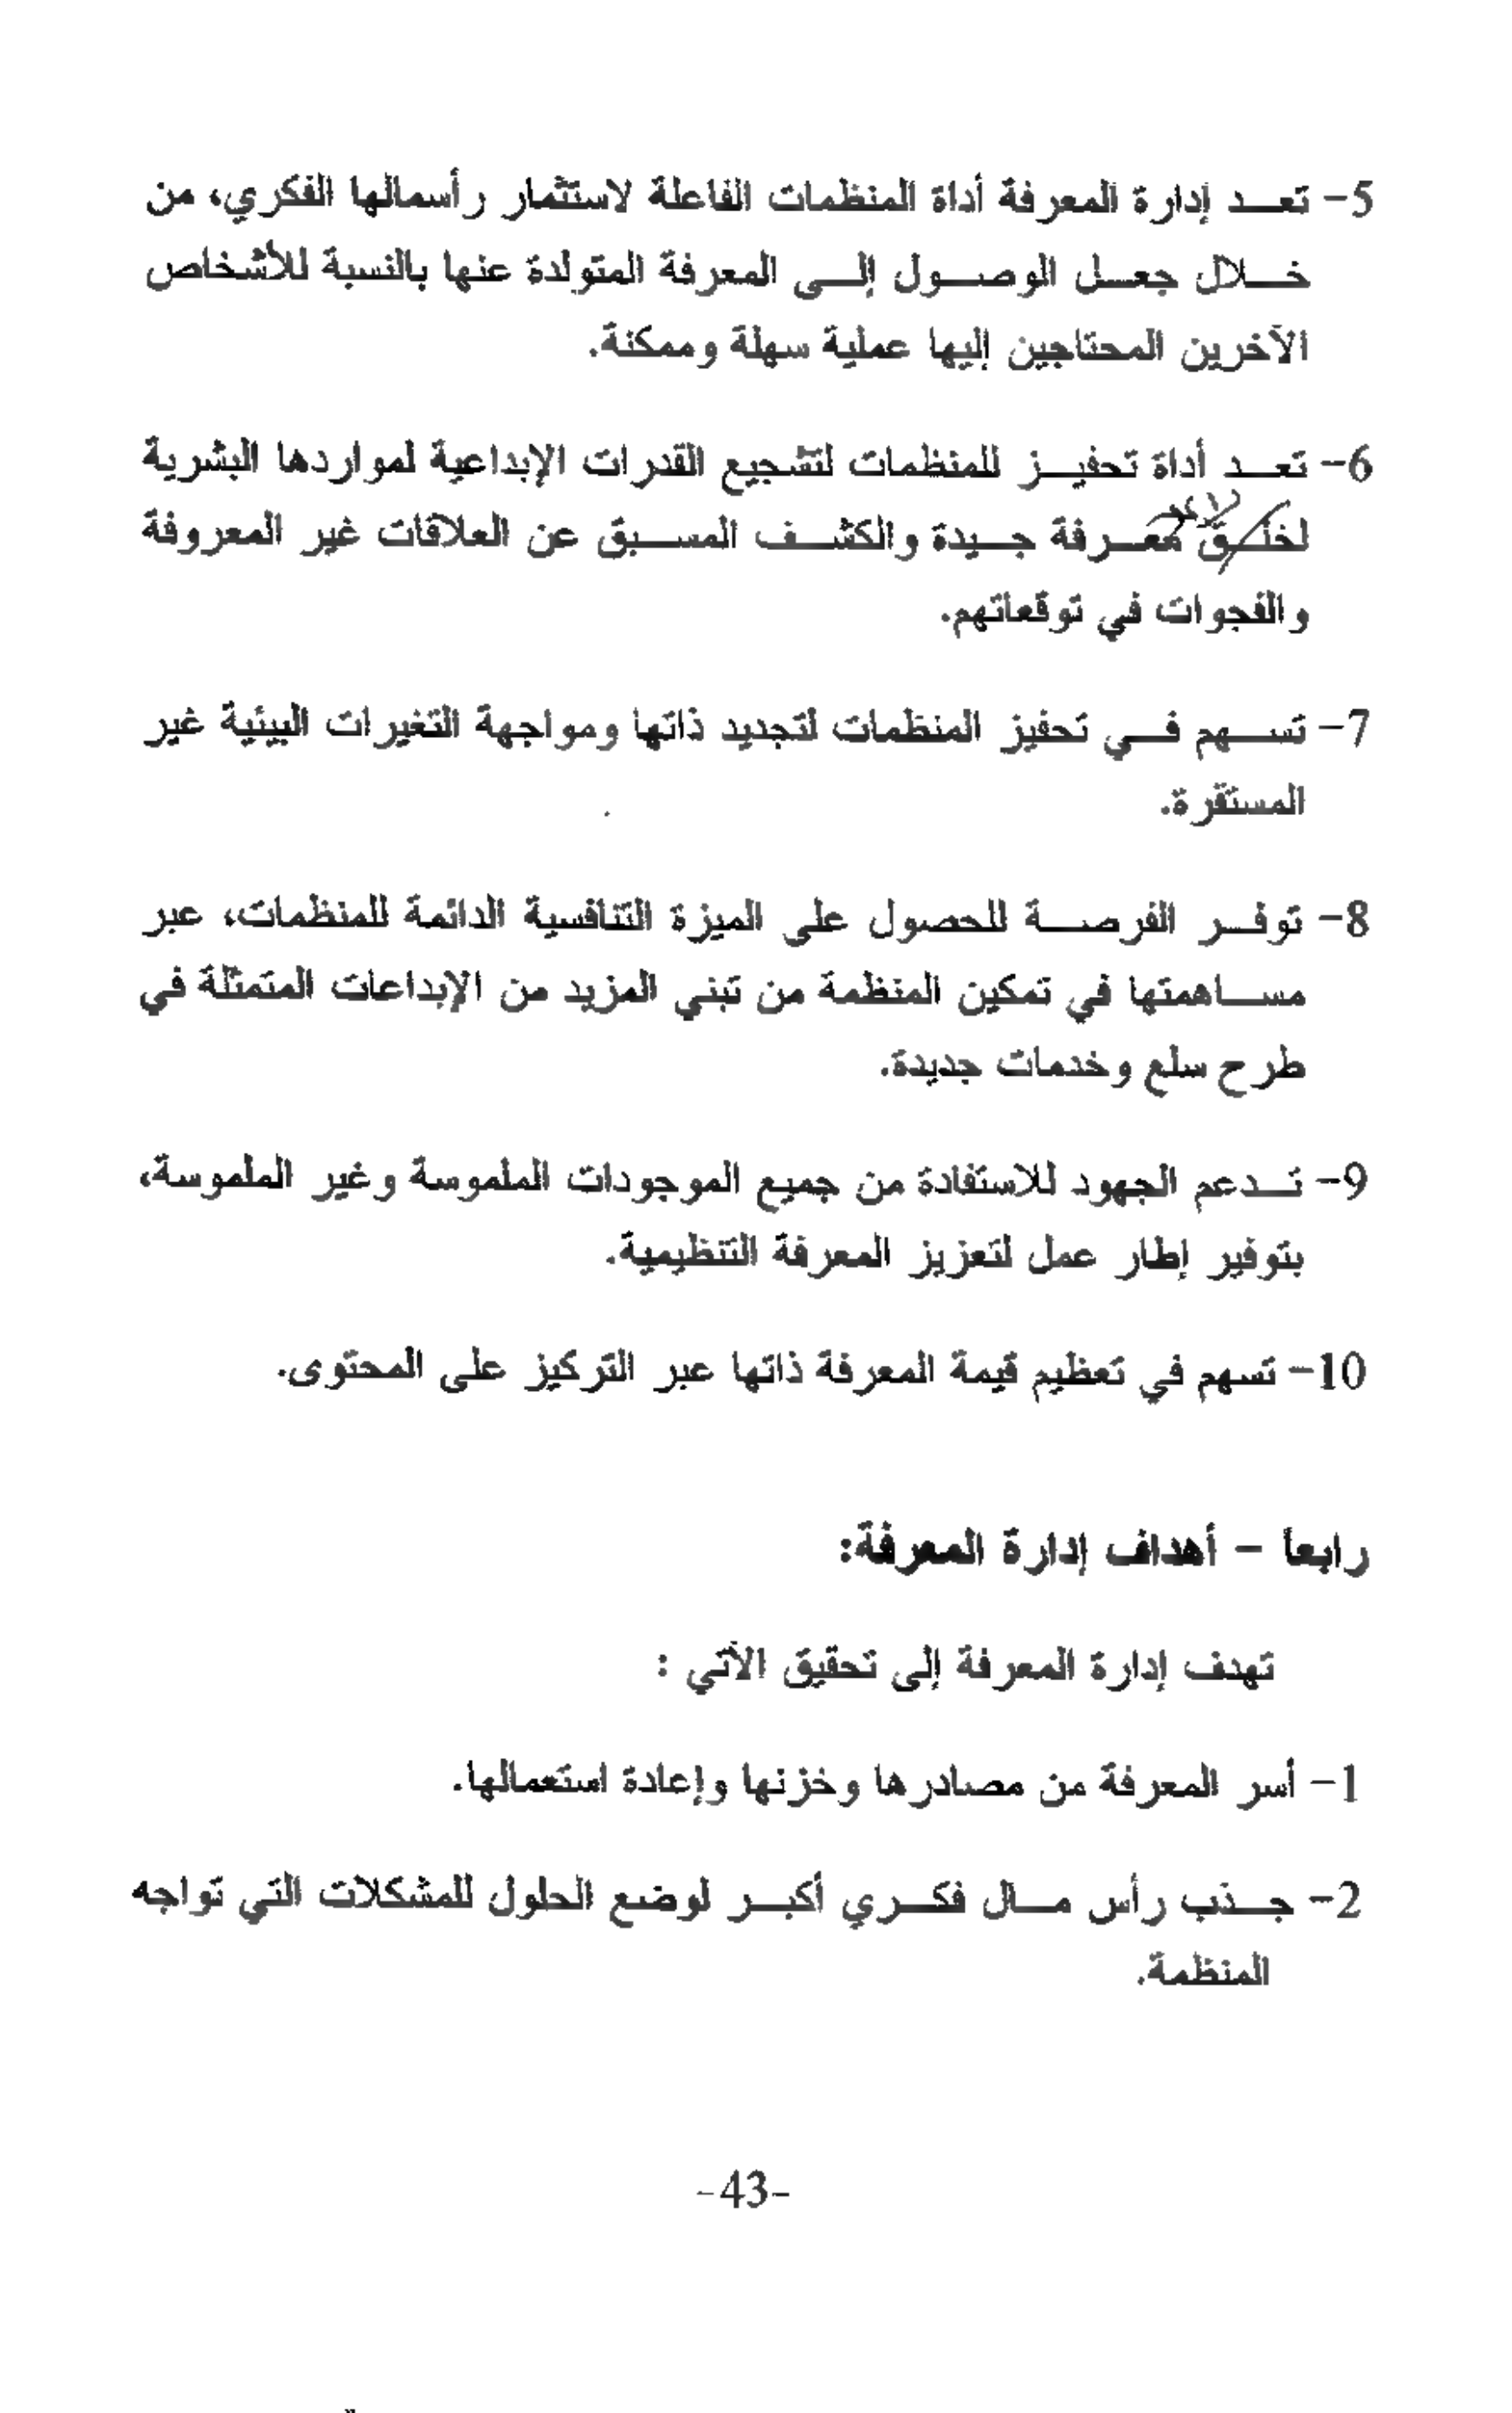 5- تعد إدارة المعرفة أداة المنظمات الفاعلة لاستثمار رأسمالها الفكري، من
خلال جعل الوصول إلى المعرفة المتولدة عنها بالنسبة للأشخاص
الآخرين المحتاجين إليها عملية سهلة وممكنة.
6- تعد أداة تحفيز للمنظمات لتشجيع القدرات الإبداعية لمواردها البشرية
لخلق معرفة جيدة والكشف المسبق عن العلاقات غير المعروفة
والفجوات في توقعاتهم.
7- تسهم في تحفيز المنظمات لتجديد ذاتها ومواجهة التغيرات البيئية غير
المستقرة.
8- توفر الفرصة للحصول على الميزة التنافسية الدائمة للمنظمات، عبر
مساهمتها في تمكين المنظمة من تبني المزيد من الإبداعات المتمثلة في
طرح سلع وخدمات جديدة.
9- تدعم الجهود للاستفادة من جميع الموجودات الملموسة وغير الملموسة،
بتوفير إطار عمل لتعزيز المعرفة التنظيمية.
10- تسهم في تعظيم قيمة المعرفة ذاتها عبر التركيز على المحتوى.
رابعاً - أهداف إدارة المعرفة:
تهدف إدارة المعرفة إلى تحقيق الآتي :
1- أسر المعرفة من مصادرها وخزنها وإعادة استعمالها.
2- جذب رأس مال فكري أكبر لوضع الحلول للمشكلات التي تواجه
المنظمة.
-43-